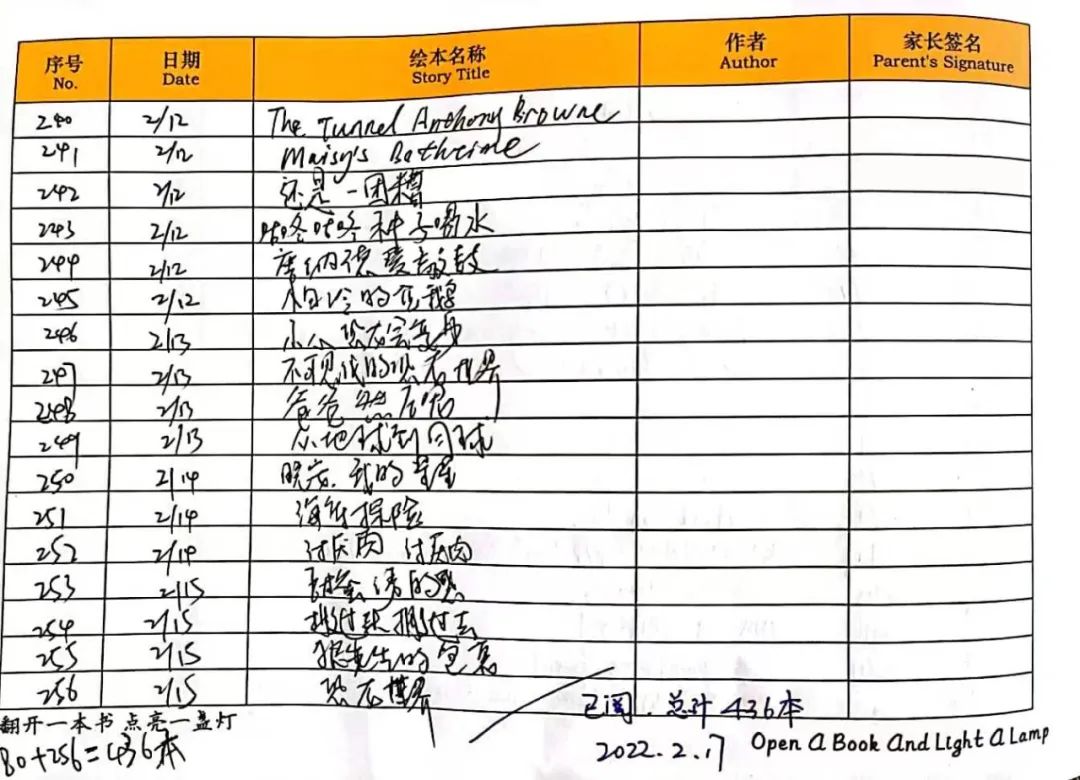 序号 日期 绘本名称 作者 家长签名
No. Date Story Title Author Parent's Signature
240 2/12 The Tunnel Anthony Browne
241 2/12 Maisy's Bathtime
242 2/12 还是一团糟
243 2/12 咕咚咕咚种子喝水
244 2/12 唐纳德爱敲鼓
245 2/12 怕冷的企鹅
246 2/13 小小恐龙
247 2/13 不可思议的恐龙世界
248 2/13 爸爸
249 2/13 从地球到月球
250 2/14 晚安,我的星星
251 2/14 海底探险
252 2/14 讨厌肉 讨厌肉
253 2/15 的
254 2/15 搬过来搬过去
255 2/15 狼先生的
256 2/15 恐龙世界
翻开一本书 点亮一盏灯 已阅.总计436本
80+256=436本 2022.2.17 Open A Book And Light A Lamp